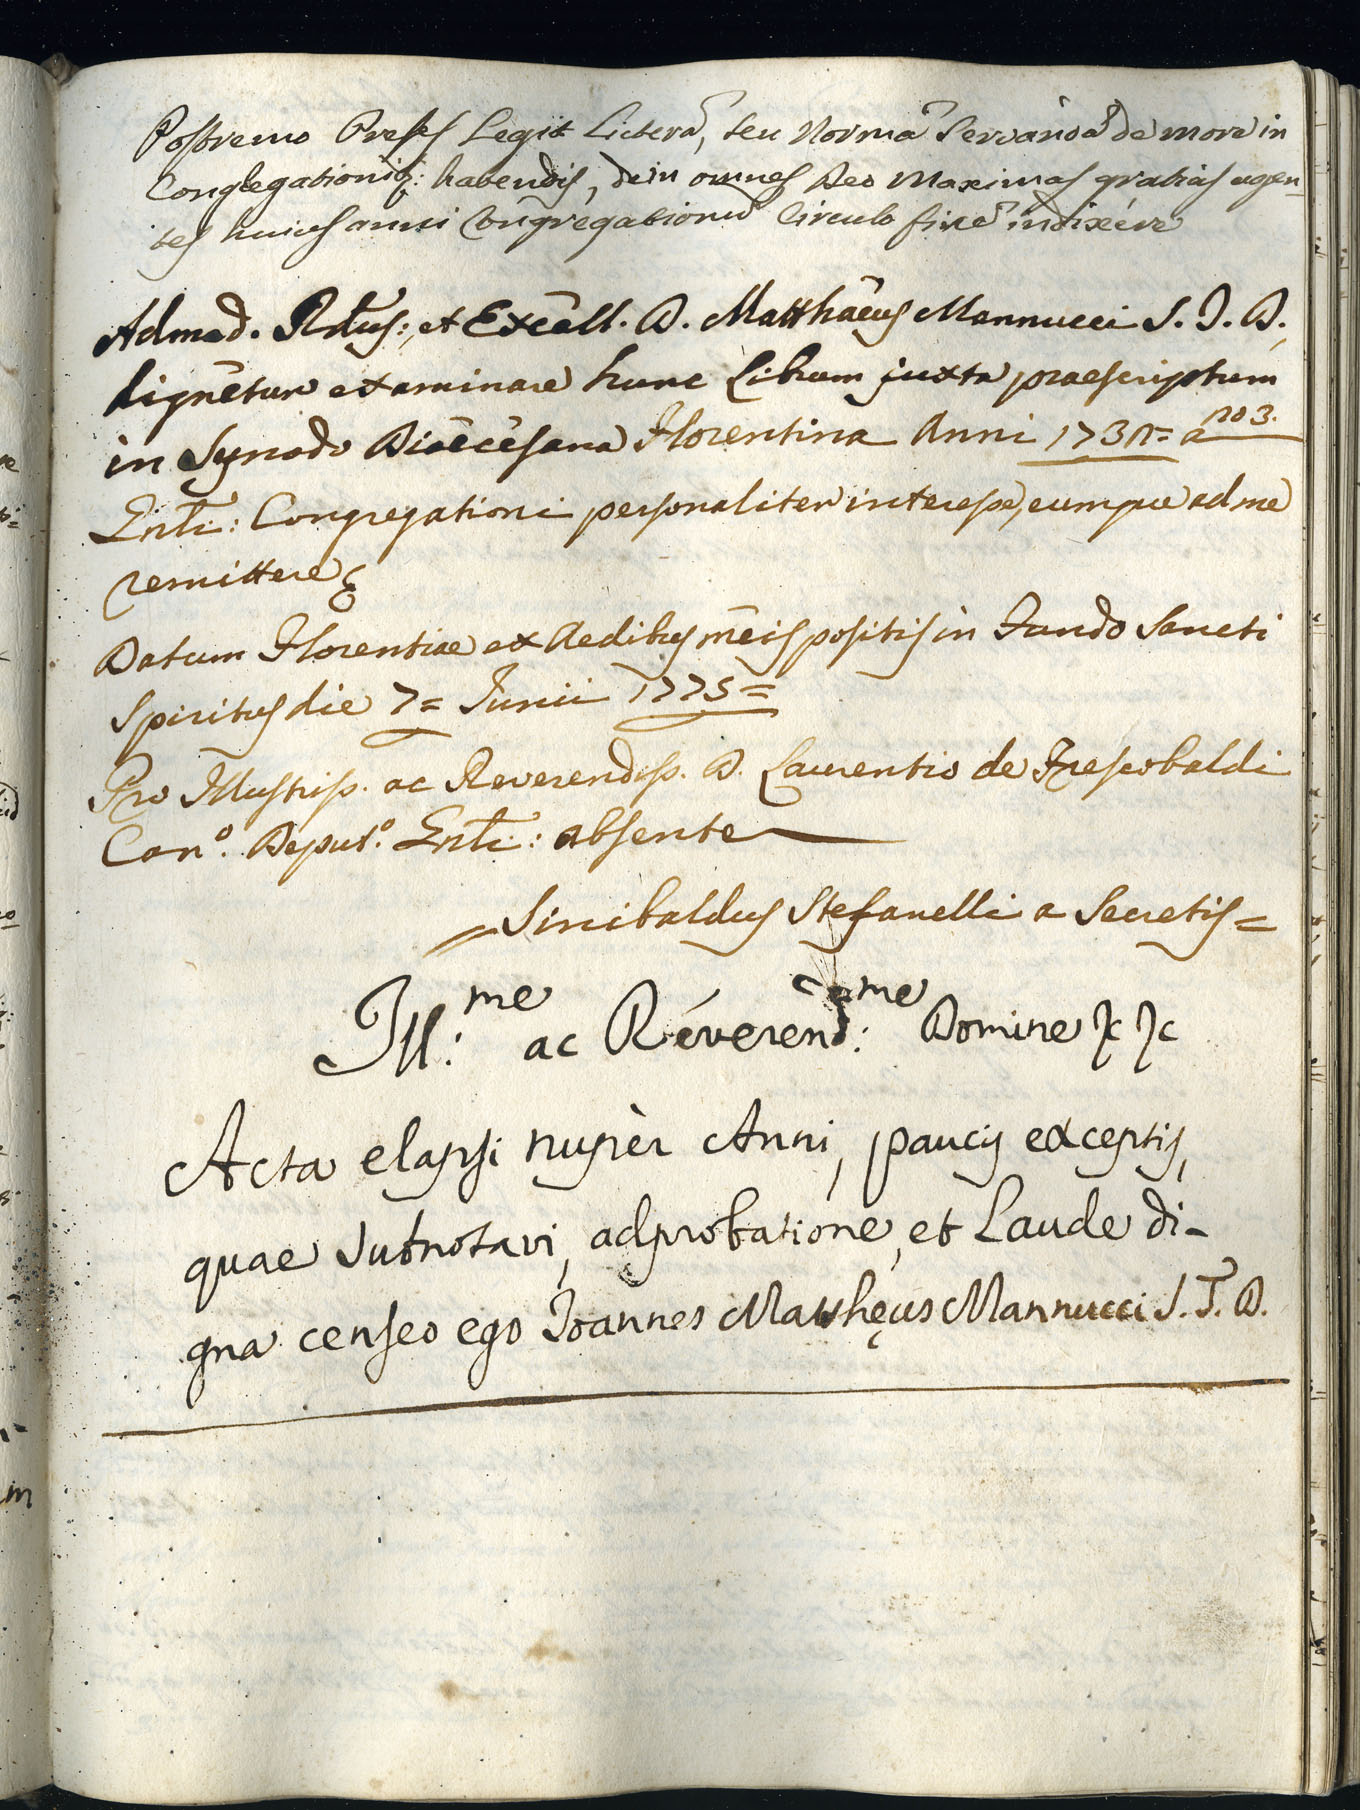 Postremo Preses Legit Litterā, seu Normā Servandā de more in
Congregationib: habendis, dein omnes Deo Maximas gratias agen-
tes huius anni Congregationū Circulo finē indixére
Admod. Rdus: et Excell. D. Matthaeus Mannucci S. T. D.
dignetur examinare hunc Librum juxta praescriptum
in Synodo Dioecesana Florentina Anni
Enti: Congregationi personaliter interesse, eumque ad me
remittere
Datum Florentiae ex Aedibus meis positis in Fundo Sancti
Spiritus die 7= Junii 1775=
Pro Illustriss. ac Reverendiss. D. Laurentio de Frescobaldi
Can.º Deput.º Enti: absente
=Sinibaldus Stefanelli a Secretis=
Ill:me ac Réverend:me Domine
Acta elapsi nupèr Anni, paucis exceptis,
quae subnotavi, adprobatione, et Laude di-
gna censeo ego Joannes Matthęus Mannucci S. T. D.